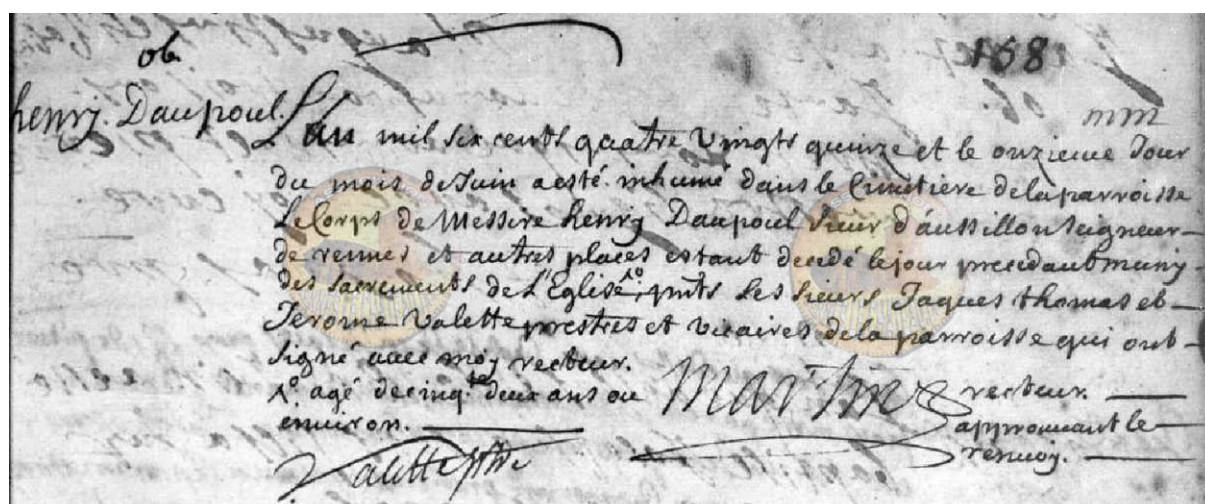 ob.
168
mm
henry. Daupoul.
L'an mil six cents quatre Vingts quinze et le onzieme Jour
du mois de Juin a esté inhumé dans le Cimetiére de la parroisse
Le Corps de Messire henry Daupoul Sieur d'aussillon seigneur
de rennes et autres places estant decedé le jour precedant muny
des sacrements de L'Eglise, pnts les sieurs Jaques thomas et
Jerome Valette prestres et vicaires de la parroisse qui ont
signé avec moy recteur.
agé de cinq.te deux ans ou
environ.
Martin recteur.
approuvant le
renvoy.
Valette ptre